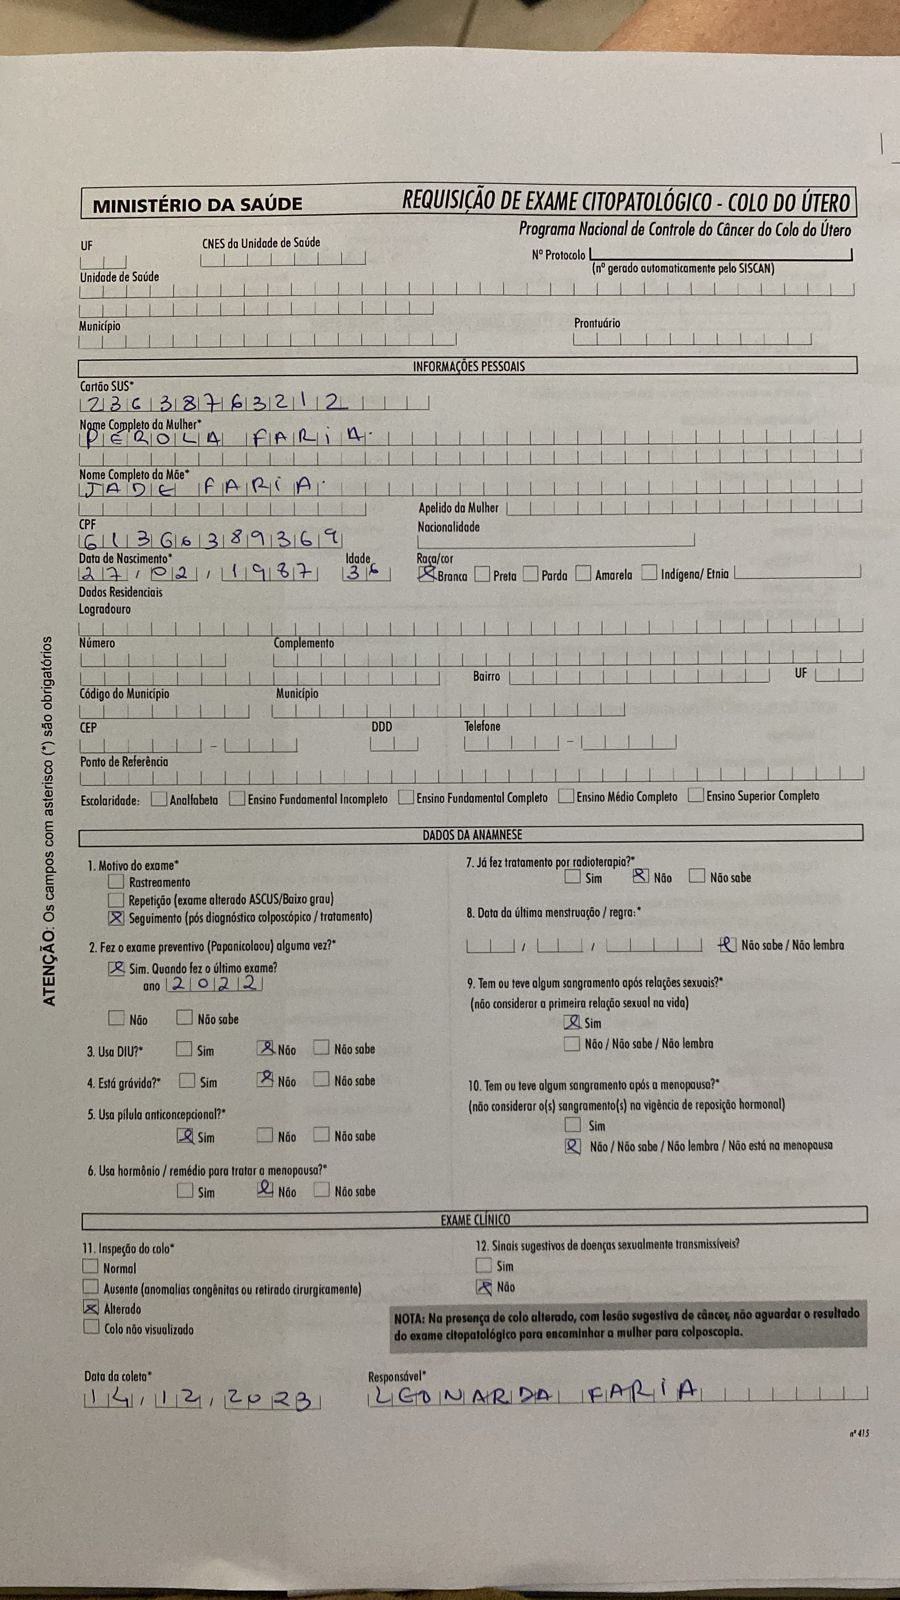 MINISTÉRIO DA SAÚDE REQUISIÇÃO DE EXAME CITOPATOLÓGICO - COLO DO ÚTERO
Programa Nacional de Controle do Câncer do Colo do Útero
UF CNES da Unidade de Saúde Nº Protocolo
(nº gerado automaticamente pelo SISCAN)
Unidade de Saúde
Município Prontuário
INFORMAÇÕES PESSOAIS
Cartão SUS*
23638763212
Nome Completo da Mulher*
PEROLA FARIA
Nome Completo da Mãe*
JADE FARIA
Apelido da Mulher
CPF Nacionalidade
61366389369
Data de Nascimento* Idade Raça/cor
27/02/1987 36 Branca Preta Parda Amarela Indígena/ Etnia
Dados Residenciais
Logradouro
Número Complemento
Bairro UF
Código do Município Município
CEP DDD Telefone
Ponto de Referência
Escolaridade: Analfabeta Ensino Fundamental Incompleto Ensino Fundamental Completo Ensino Médio Completo Ensino Superior Completo
ATENÇÃO: Os campos com asterisco (*) são obrigatórios
DADOS DA ANAMNESE
1. Motivo do exame*
Rastreamento
Repetição (exame alterado ASCUS/Baixo grau)
Seguimento (pós diagnóstico colposcópico / tratamento)
2. Fez o exame preventivo (Papanicolaou) alguma vez?*
Sim. Quando fez o último exame?
ano 2022
Não Não sabe
3. Usa DIU?* Sim Não Não sabe
4. Está grávida?* Sim Não Não sabe
5. Usa pílula anticoncepcional?*
Sim Não Não sabe
6. Usa hormônio / remédio para tratar a menopausa?*
Sim Não Não sabe
7. Já fez tratamento por radioterapia?*
Sim Não Não sabe
8. Data da última menstruação / regra:*
/ / Não sabe / Não lembra
9. Tem ou teve algum sangramento após relações sexuais?*
(não considerar a primeira relação sexual na vida)
Sim
Não / Não sabe / Não lembra
10. Tem ou teve algum sangramento após a menopausa?*
(não considerar o(s) sangramento(s) na vigência de reposição hormonal)
Sim
Não / Não sabe / Não lembra / Não está na menopausa
EXAME CLÍNICO
11. Inspeção do colo*
Normal
Ausente (anomalias congênitas ou retirado cirurgicamente)
Alterado
Colo não visualizado
12. Sinais sugestivos de doenças sexualmente transmissíveis?
Sim
Não
NOTA: Na presença de colo alterado, com lesão sugestiva de câncer, não aguardar o resultado
do exame citopatológico para encaminhar a mulher para colposcopia.
Data da coleta* Responsável*
14/12/2023 LEONARDA FARIA
nº 415